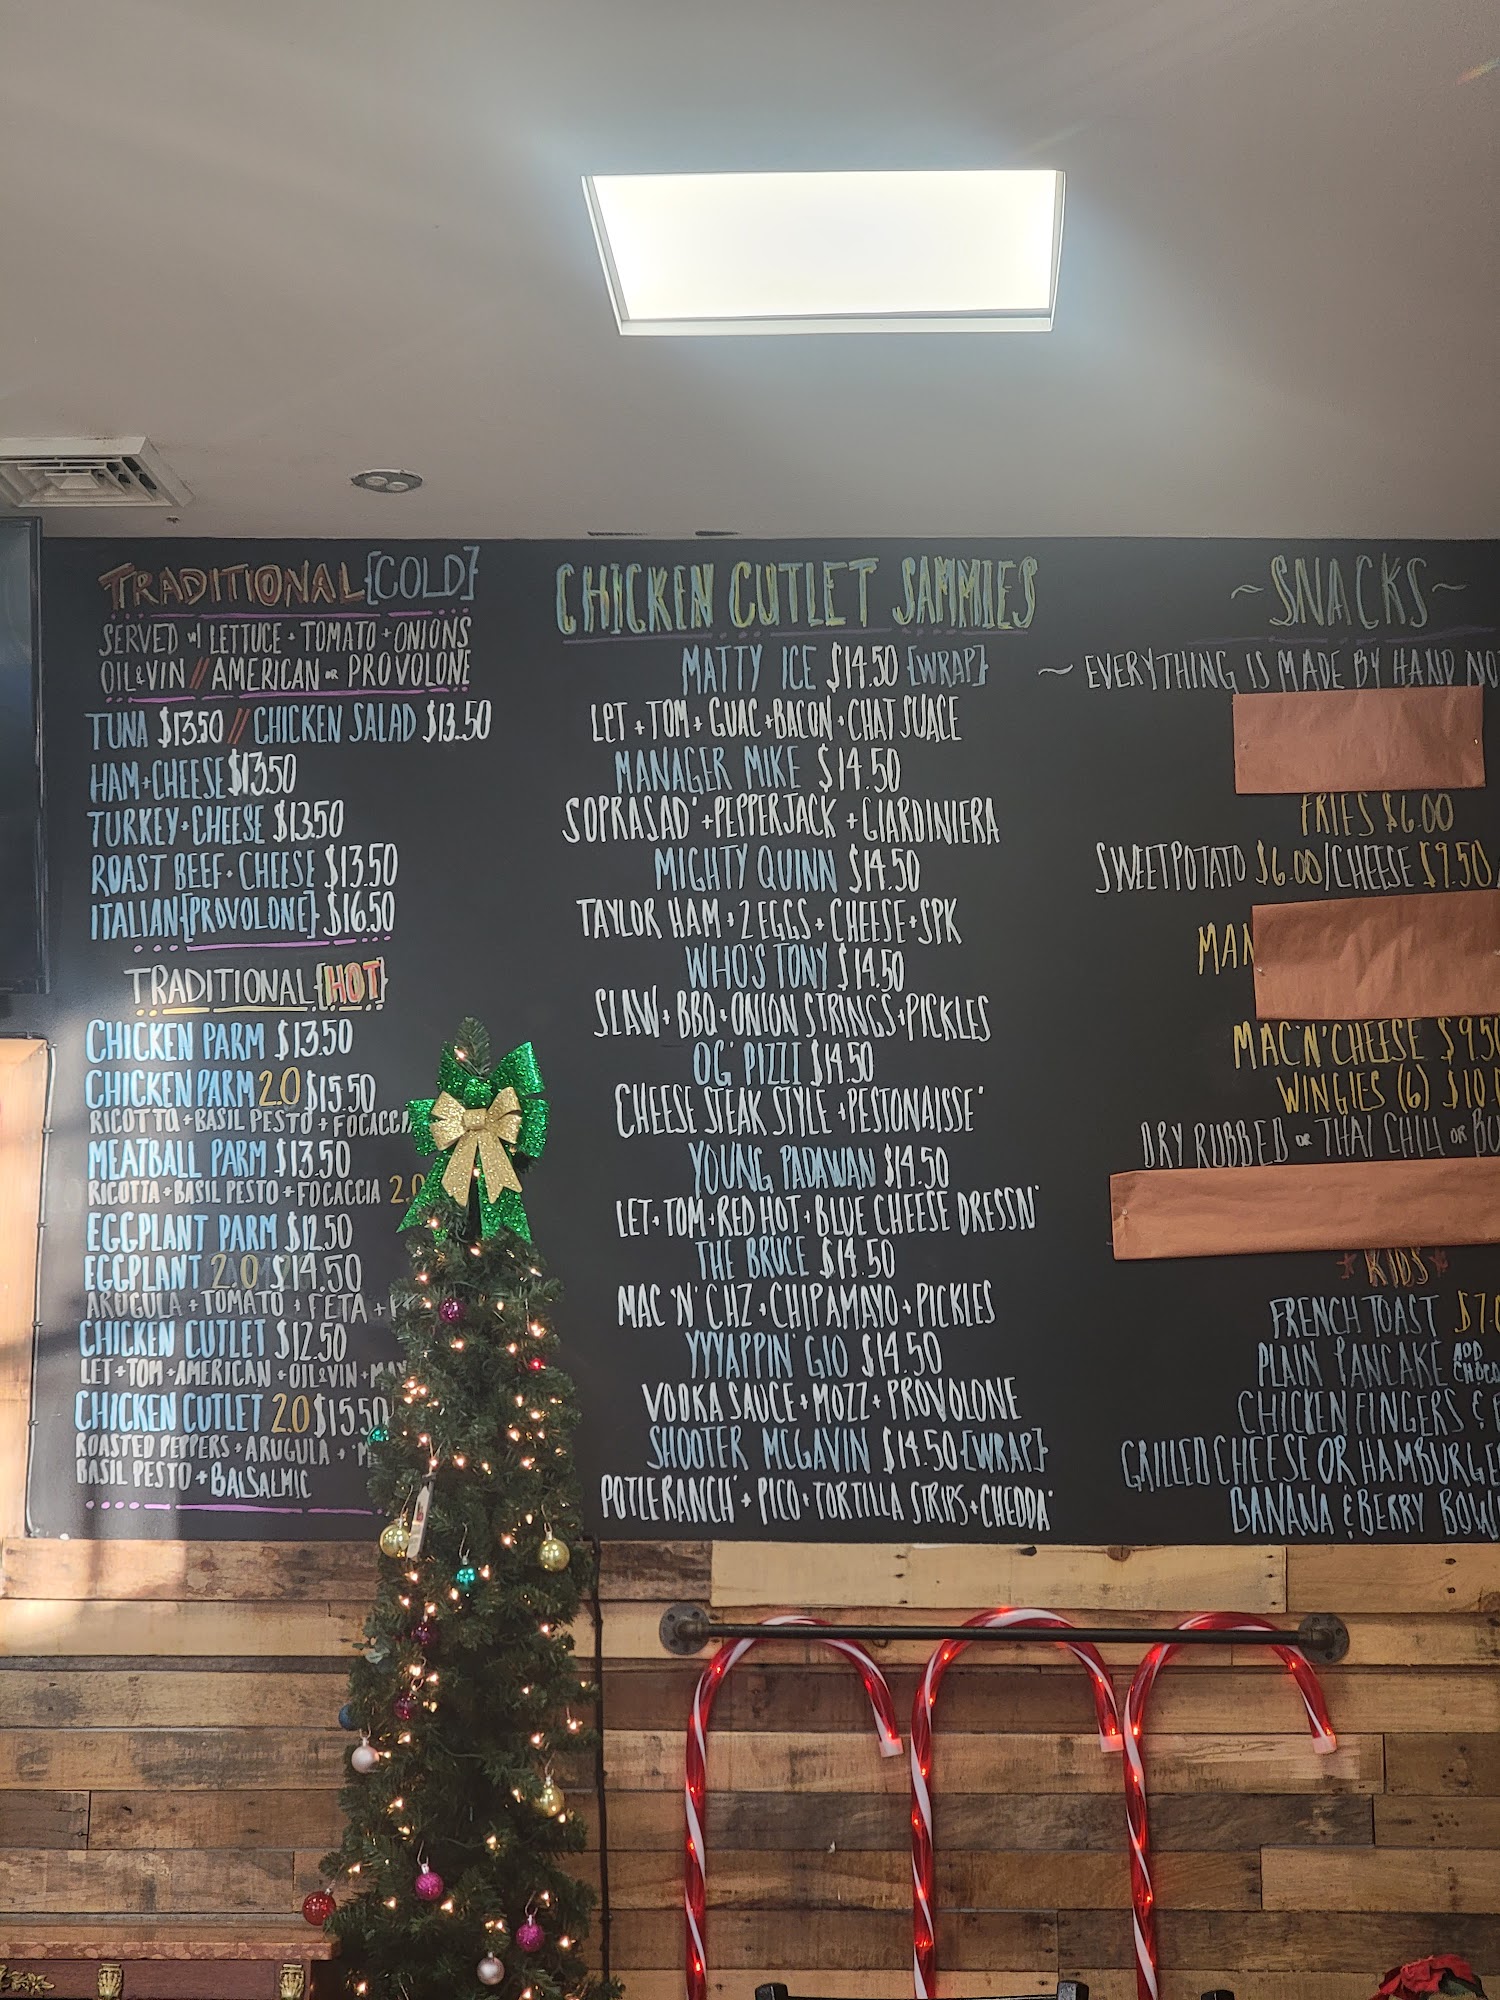 TRADITIONAL {COLD}
SERVED W/ LETTUCE + TOMATO + ONIONS
OIL & VIN // AMERICAN OR PROVOLONE
TUNA $13.50 // CHICKEN SALAD $13.50
HAM + CHEESE $13.50
TURKEY + CHEESE $13.50
ROAST BEEF + CHEESE $13.50
ITALIAN {PROVOLONE} $16.50
TRADITIONAL {HOT}
CHICKEN PARM $13.50
CHICKEN PARM 2.0 $15.50
RICOTTA + BASIL PESTO + FOCACCIA
MEATBALL PARM $13.50
RICOTTA + BASIL PESTO + FOCACCIA 2.0
EGGPLANT PARM $12.50
EGGPLANT 2.0 $14.50
ARUGULA + TOMATO + FETA +
CHICKEN CUTLET $12.50
LET + TOM + AMERICAN + OIL & VIN +
CHICKEN CUTLET 2.0 $15.50
ROASTED PEPPERS + ARUGULA +
BASIL PESTO + BALSALMIC
CHICKEN CUTLET SAMMIES
MATTY ICE $14.50 {WRAP}
LET + TOM + GUAC + BACON + CHAT SUACE
MANAGER MIKE $14.50
SOPRASAD' + PEPPERJACK + GIARDINIERA
MIGHTY QUINN $14.50
TAYLOR HAM + 2 EGGS + CHEESE + SPK
WHO'S TONY $14.50
SLAW + BBQ + ONION STRINGS + PICKLES
OG' PIZZI $14.50
CHEESE STEAK STYLE + PESTONAISSE'
YOUNG PADAWAN $14.50
LET + TOM + RED HOT + BLUE CHEESE DRESSN'
THE BRUCE $14.50
MAC 'N' CHZ + CHIPAMAYO + PICKLES
YYYAPPIN' GIO $14.50
VODKA SAUCE + MOZZ + PROVOLONE
SHOOTER MCGAVIN $14.50 {WRAP}
POTLE RANCH' + PICO + TORTILLA STRIPS + CHEDDA'
~ SNACKS ~
~ EVERYTHING IS MADE BY HAND
FRIES $6.00
SWEET POTATO $6.00 / CHEESE $9.50
MAN
MAC 'N' CHEESE $9.50
WINGIES (6) $10.
DRY RUBBED OR THAI CHILI OR
* KIDS *
FRENCH TOAST $7.
PLAIN PANCAKE ADD
CHICKEN FINGERS &
GRILLED CHEESE OR HAMBURGE
BANANA & BERRY BOWL